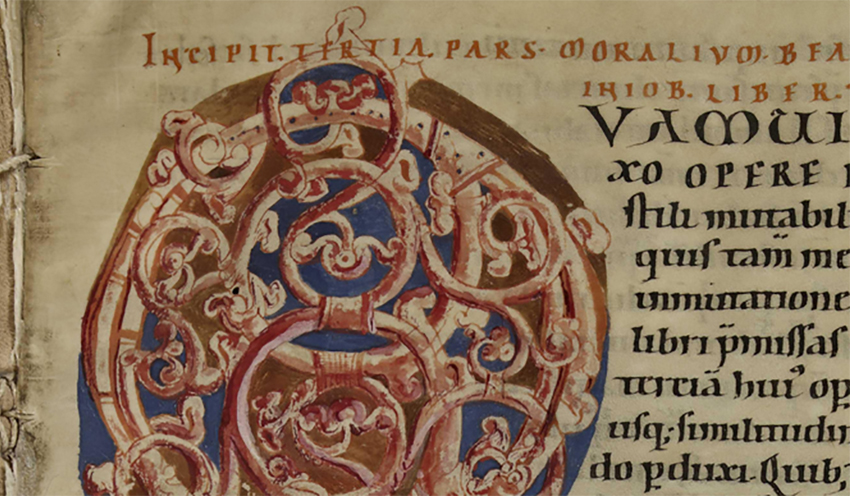 INCIPIT. TERTIA. PARS. MORALIVM. BEA
IN IOB. LIBER.
VAMVI
XO OPERE
stili mutabil
quis tam̄ me
inmutatione
libri p̄missas
tertiā hui᷒ op
usq; similitudin
do ꝑduxi. Quib;